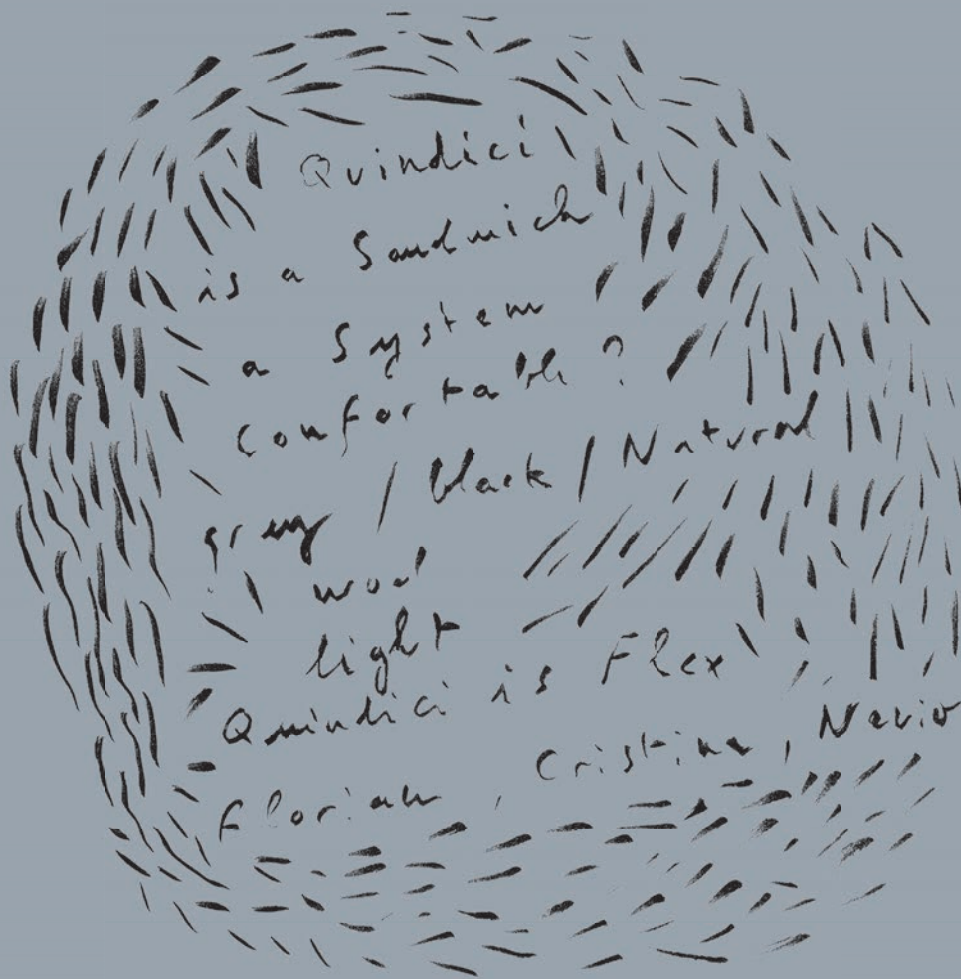 Quindici
is a Sandwich
a System
Confortable ?
grey / black / Natural
wood
light
Quindici is Flex
Florian , Cristina , Nevio